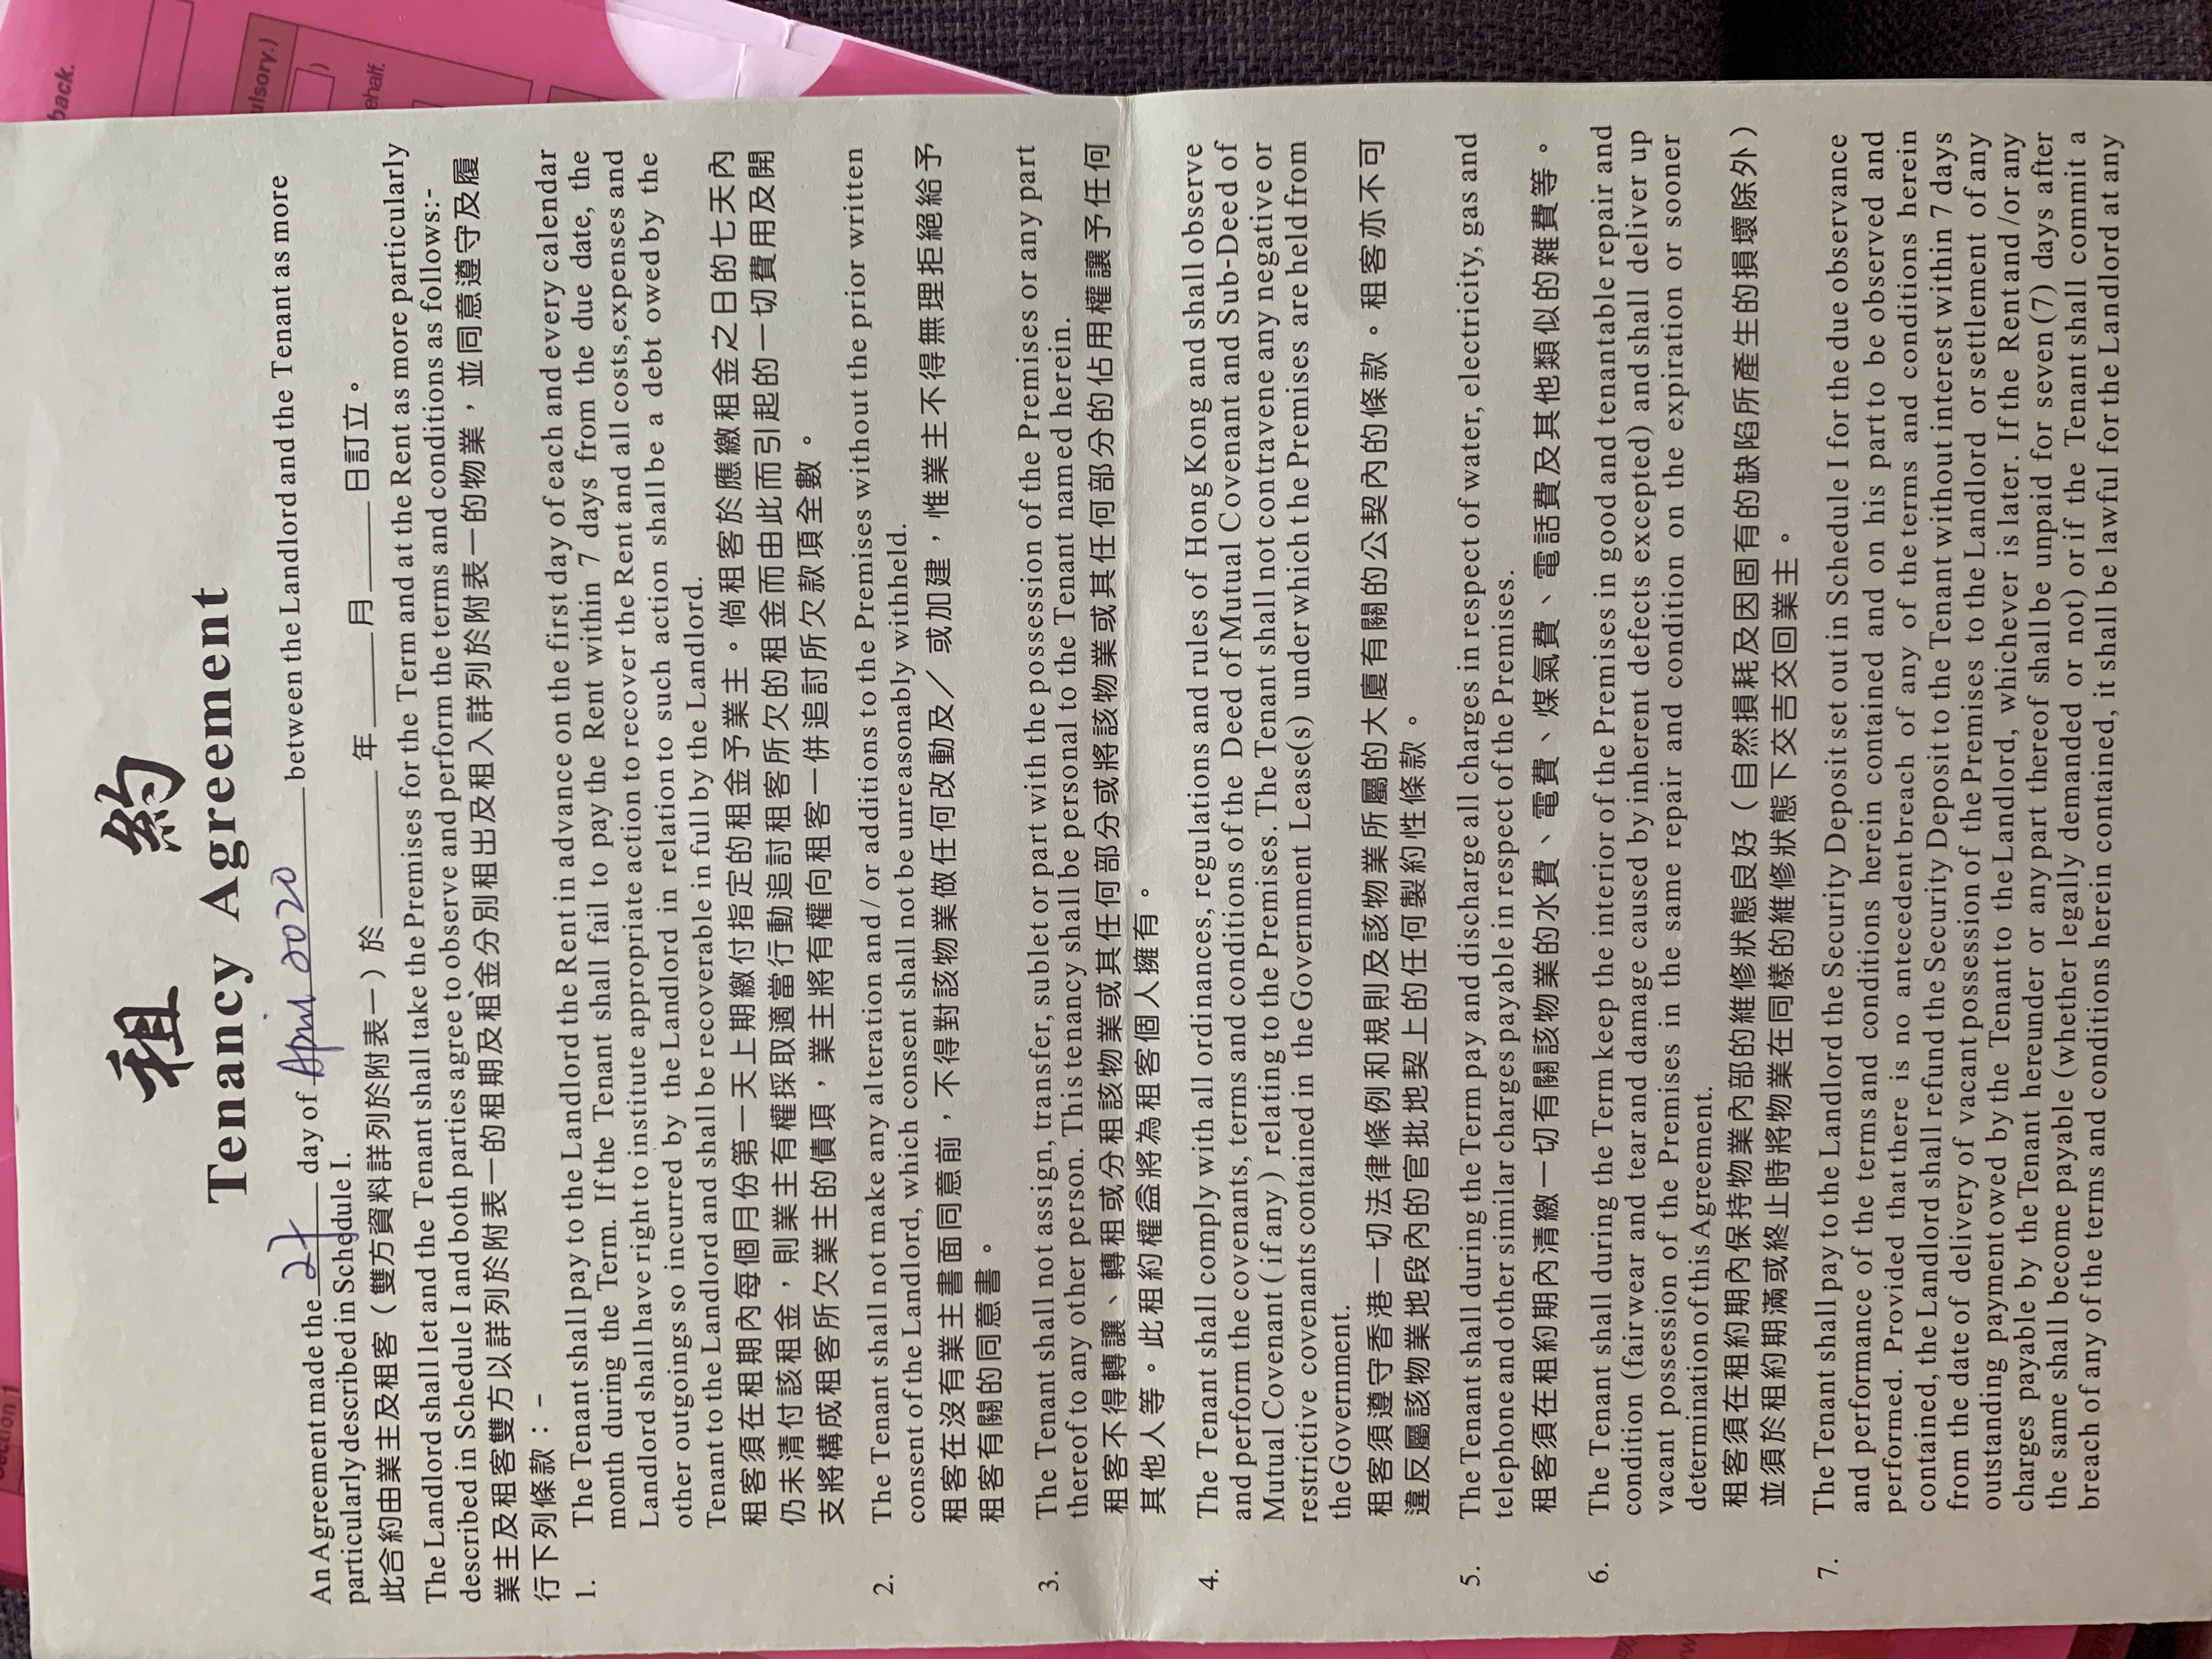 back.
ulsory.)
)
ehalf.
租 約
Tenancy Agreement
An Agreement made the day of April 2020 between the Landlord and the Tenant as more
particularly described in Schedule I.
此合約由業主及租客（雙方資料詳列於附表一）於 年 月 日訂立。
The Landlord shall let and the Tenant shall take the Premises for the Term and at the Rent as more particularly
described in Schedule I and both parties agree to observe and perform the terms and conditions as follows:-
業主及租客雙方以詳列於附表一的租期及租金分別租出及租入詳列於附表一的物業，並同意遵守及履
行下列條款：-
1. The Tenant shall pay to the Landlord the Rent in advance on the first day of each and every calendar
month during the Term. If the Tenant shall fail to pay the Rent within 7 days from the due date, the
Landlord shall have right to institute appropriate action to recover the Rent and all costs,expenses and
other outgoings so incurred by the Landlord in relation to such action shall be a debt owed by the
Tenant to the Landlord and shall be recoverable in full by the Landlord.
租客須在租期內每個月份第一天上期繳付指定的租金予業主。倘租客於應繳租金之日的七天內
仍未清付該租金，則業主有權採取適當行動追討租客所欠的租金而由此而引起的一切費用及開
支將構成租客所欠業主的債項，業主將有權向租客一併追討所欠款項全數。
2. The Tenant shall not make any alteration and / or additions to the Premises without the prior written
consent of the Landlord, which consent shall not be unreasonably withheld.
租客在沒有業主書面同意前，不得對該物業做任何改動及／或加建，惟業主不得無理拒絕給予
租客有關的同意書。
3. The Tenant shall not assign, transfer, sublet or part with the possession of the Premises or any part
thereof to any other person. This tenancy shall be personal to the Tenant named herein.
租客不得轉讓、轉租或分租該物業或其任何部分或將該物業或其任何部分的佔用權讓予任何
其他人等。此租約權益將為租客個人擁有。
4. The Tenant shall comply with all ordinances, regulations and rules of Hong Kong and shall observe
and perform the covenants, terms and conditions of the Deed of Mutual Covenant and Sub-Deed of
Mutual Covenant ( if any ) relating to the Premises. The Tenant shall not contravene any negative or
restrictive covenants contained in the Government Lease(s) under which the Premises are held from
the Government.
租客須遵守香港一切法律條例和規則及該物業所屬的大廈有關的公契內的條款。租客亦不可
違反屬該物業地段內的官批地契上的任何製約性條款。
5. The Tenant shall during the Term pay and discharge all charges in respect of water, electricity, gas and
telephone and other similar charges payable in respect of the Premises.
租客須在租約期內清繳一切有關該物業的水費、電費、煤氣費、電話費及其他類似的雜費等。
6. The Tenant shall during the Term keep the interior of the Premises in good and tenantable repair and
condition (fair wear and tear and damage caused by inherent defects excepted) and shall deliver up
vacant possession of the Premises in the same repair and condition on the expiration or sooner
determination of this Agreement.
租客須在租約期內保持物業內部的維修狀態良好（自然損耗及因固有的缺陷所產生的損壞除外）
並須於租約期滿或終止時將物業在同樣的維修狀態下交吉交回業主。
7. The Tenant shall pay to the Landlord the Security Deposit set out in Schedule I for the due observance
and performance of the terms and conditions herein contained and on his part to be observed and
performed. Provided that there is no antecedent breach of any of the terms and conditions herein
contained, the Landlord shall refund the Security Deposit to the Tenant without interest within 7 days
from the date of delivery of vacant possession of the Premises to the Landlord or settlement of any
outstanding payment owed by the Tenant to the Landlord, whichever is later. If the Rent and/or any
charges payable by the Tenant hereunder or any part thereof shall be unpaid for seven (7) days after
the same shall become payable (whether legally demanded or not) or if the Tenant shall commit a
breach of any of the terms and conditions herein contained, it shall be lawful for the Landlord at any